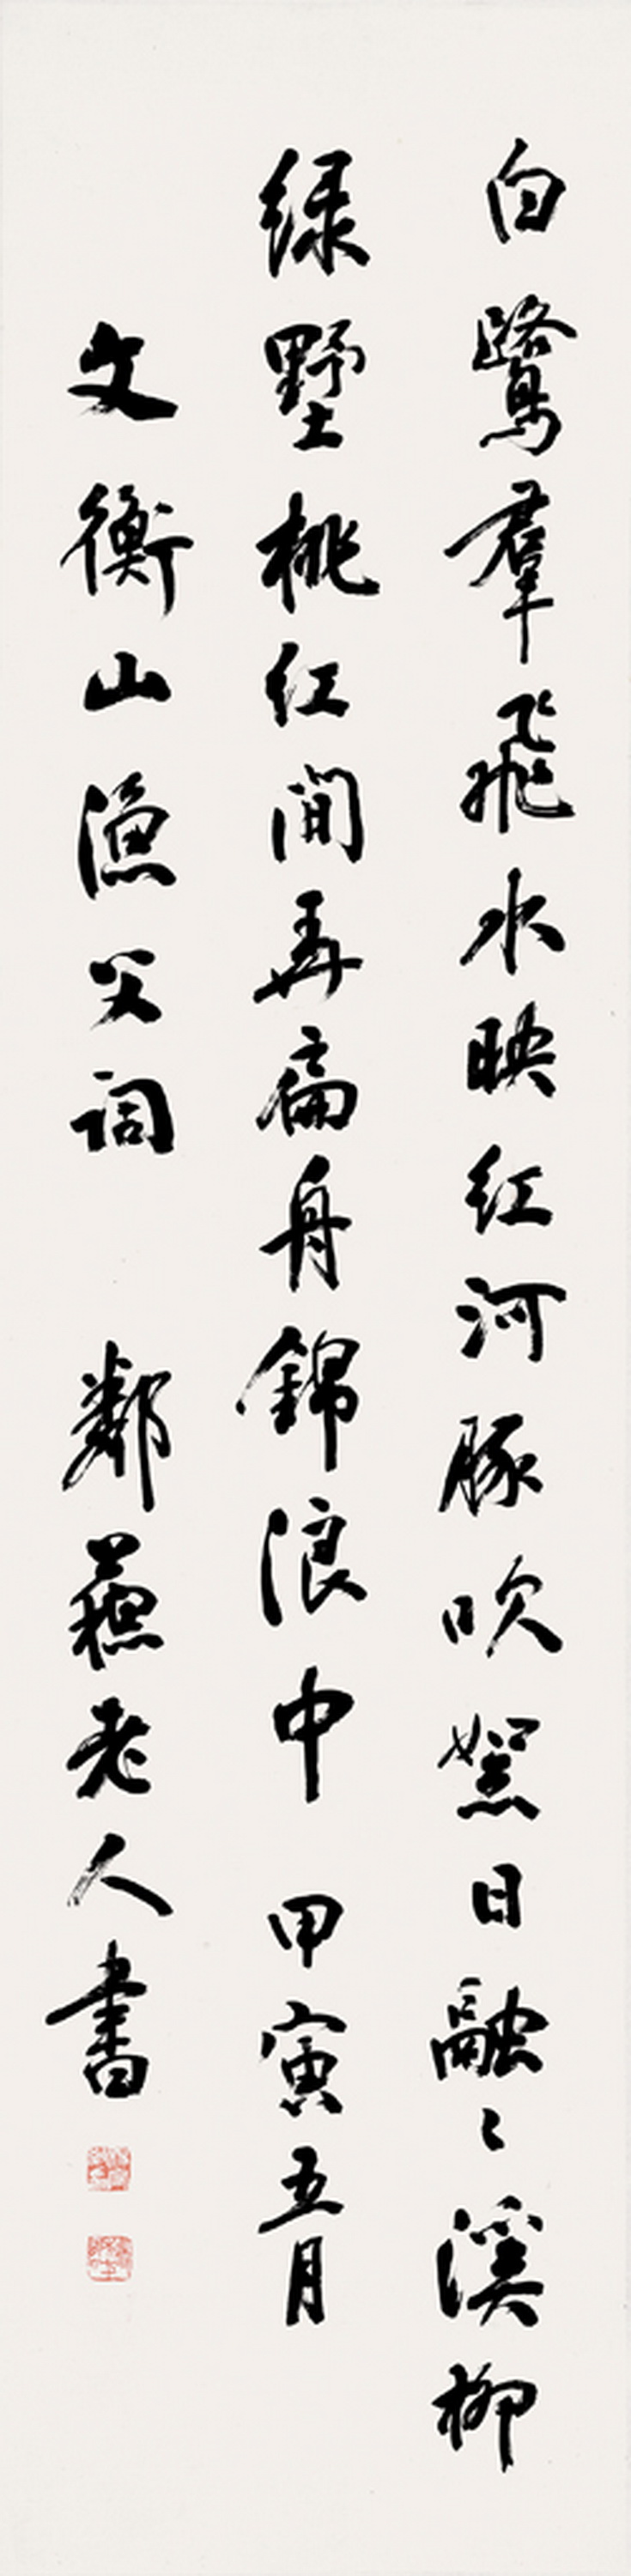 白鷺羣飛水映紅河豚吹絮日融〻溪柳
緑墅桃紅間弄扁舟錦浪中 甲寅五月
文衡山漁父詞 鄰蘇老人書